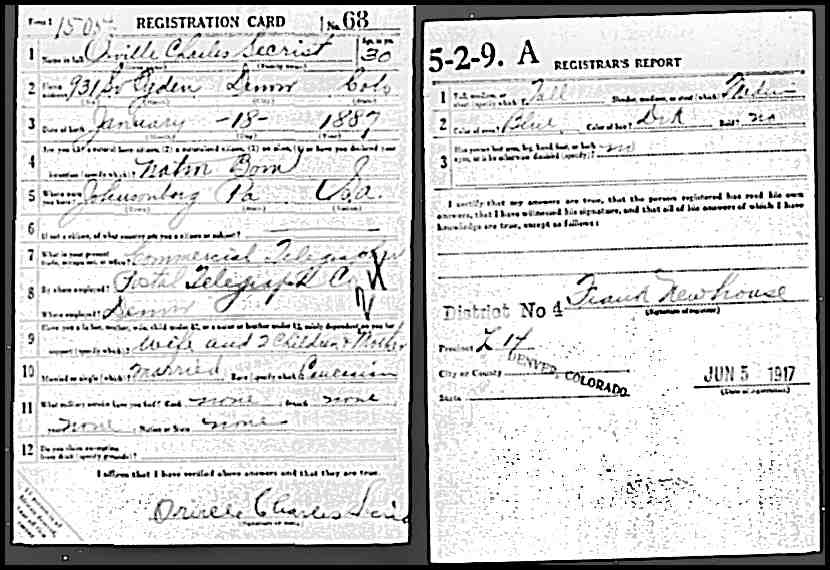 Form 1 1505 REGISTRATION CARD No. 68
1 Name in full Orville Charles Secrist Age, in yrs. 30
2 Home address 931 So Ogden Denver Colo
3 Date of birth January -18- 1887
4 Are you (1) a natural-born citizen, (2) a naturalized citizen, (3) an alien, (4) or have you declared your
intention (specify which)? Natur Born
5 Where were you born? Johnsonburg Pa USa.
6 If not a citizen, of what country are you a citizen or subject?
7 What is your present trade, occupation, or office? Commercial Telegrapher
8 By whom employed? Postal Telegraph Co
Where employed? Denver
9 Have you a father, mother, wife, child under 12, or a sister or brother under 12, solely dependent on you for
support (specify which)? Wife and 2 Children & Mother
10 Married or single (which)? Married Race (specify which)? Caucasian
11 What military service have you had? Rank none ; branch none ;
years none ; Nation or State none
12 Do you claim exemption from draft (specify grounds)?
I affirm that I have verified above answers and that they are true.
Orville Charles Secrist
(Signature or mark)
5-2-9. A REGISTRAR'S REPORT
1 Tall, medium, or short (specify which)? Tall Slender, medium, or stout (which)?
2 Color of eyes? Blue Color of hair? Drk Bald? no
3 Has person lost arm, leg, hand, foot, or both eyes, or is he otherwise disabled (specify)? no
I certify that my answers are true, that the person registered has read his own
answers, that I have witnessed his signature, and that all of his answers of which I have
knowledge are true, except as follows:
District No 4 Frank Newhouse
(Signature of registrar)
Precinct L 14
City or County
DENVER, COLORADO
State
JUN 5 1917
(Date of registration)